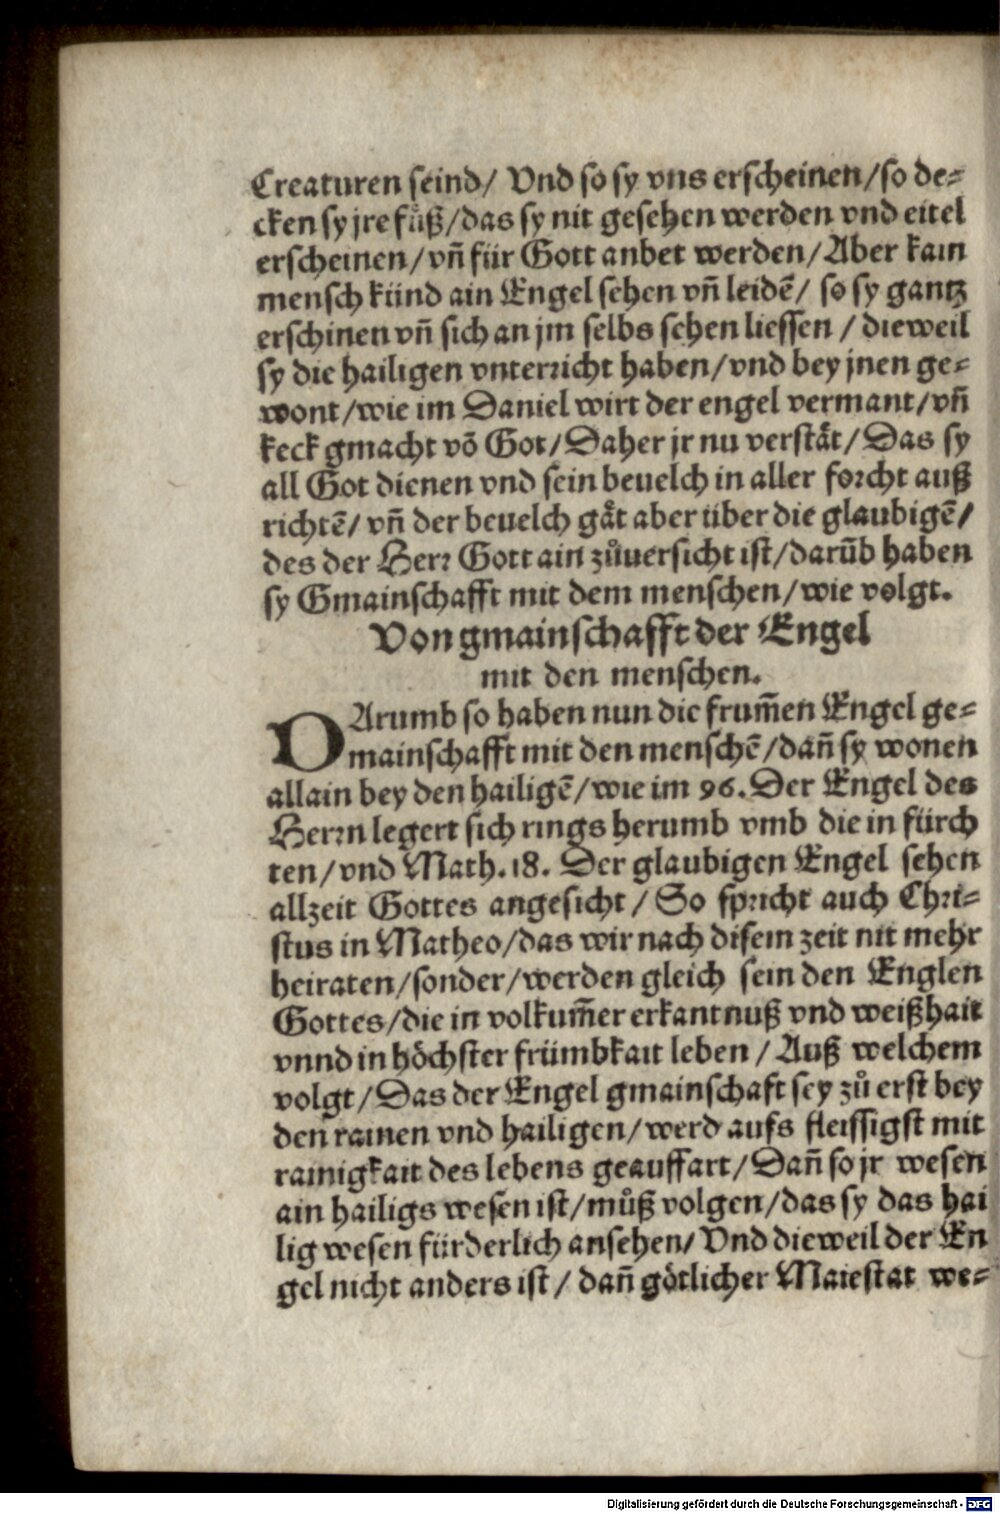 Creaturen seind/ Vnd so sy vns erscheinen/so de⸗
cken sy jre fuͤß/das sy nit gesehen werden vnd eitel
erscheinen/vñ für Gott anbet werden/Aber kain
mensch künd ain Engel sehen vñ leidẽ/ so sy gantz
erschinen vñ sich an jm selbs sehen liessen / dieweil
sy die hailigen vnterricht haben/vnd bey jnen ge⸗
wont/wie im Daniel wirt der engel vermant/vñ
keck gmacht võ Got/Daher jr nu verstaͤt/Das sy
all Got dienen vnd sein beuelch in aller forcht auß
richtẽ/ vñ der beuelch gaͤt aber über die glaubigẽ/
des der Herr Gott ain zůuersicht ist/darũb haben
sy Gmainschafft mit dem menschen/wie volgt.
Von gmainschafft der Engel
mit den menschen.
DArumb so haben nun die frum̃en Engel ge⸗
mainschafft mit den menschẽ/dañ sy wonen
allain bey den hailigẽ/wie im 96. Der Engel des
Herrn legert sich rings herumb vmb die in fürch
ten/vnd Math. 18. Der glaubigen Engel sehen
allzeit Gottes angesicht/ So spricht auch Chri⸗
stus in Matheo/das wir nach disem zeit nit mehr
heiraten/sonder/werden gleich sein den Englen
Gottes/die in volkum̃er erkantnuß vnd weißhait
vnnd in hoͤchster frümbkait leben / Auß welchem
volgt/Das der Engel gmainschaft sey zů erst bey
den rainen vnd hailigen/werd aufs fleissigst mit
rainigkait des lebens geauffart/Dañ so jr wesen
ain hailigs wesen ist/můß volgen/das sy das hai
lig wesen fürderlich ansehen/ Vnd dieweil der En
gel nicht anders ist/ dañ goͤtlicher Maiestat we⸗
Digitalisierung gefördert durch die Deutsche Forschungsgemeinschaft - DFG